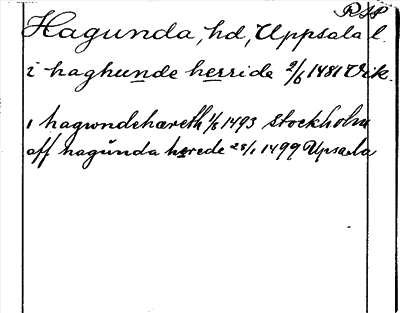 RAP
Hagunda, hd, Uppsala l.
i haghunde herride 2/6 1481 Vik.
i hagwndehæreth 1/8 1493 Stockholm
aff hagūnda hærede 28/1 1499 Upsala